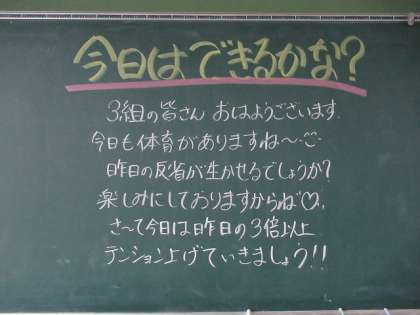 今日はできるかな?
3組の皆さん おはようございます.
今日も体育がありますね〜
昨日の反省が生かせるでしょうか?
楽しみにしておりますからね♡
さ〜て今日は昨日の3倍以上
テンション上げていきましょう!!